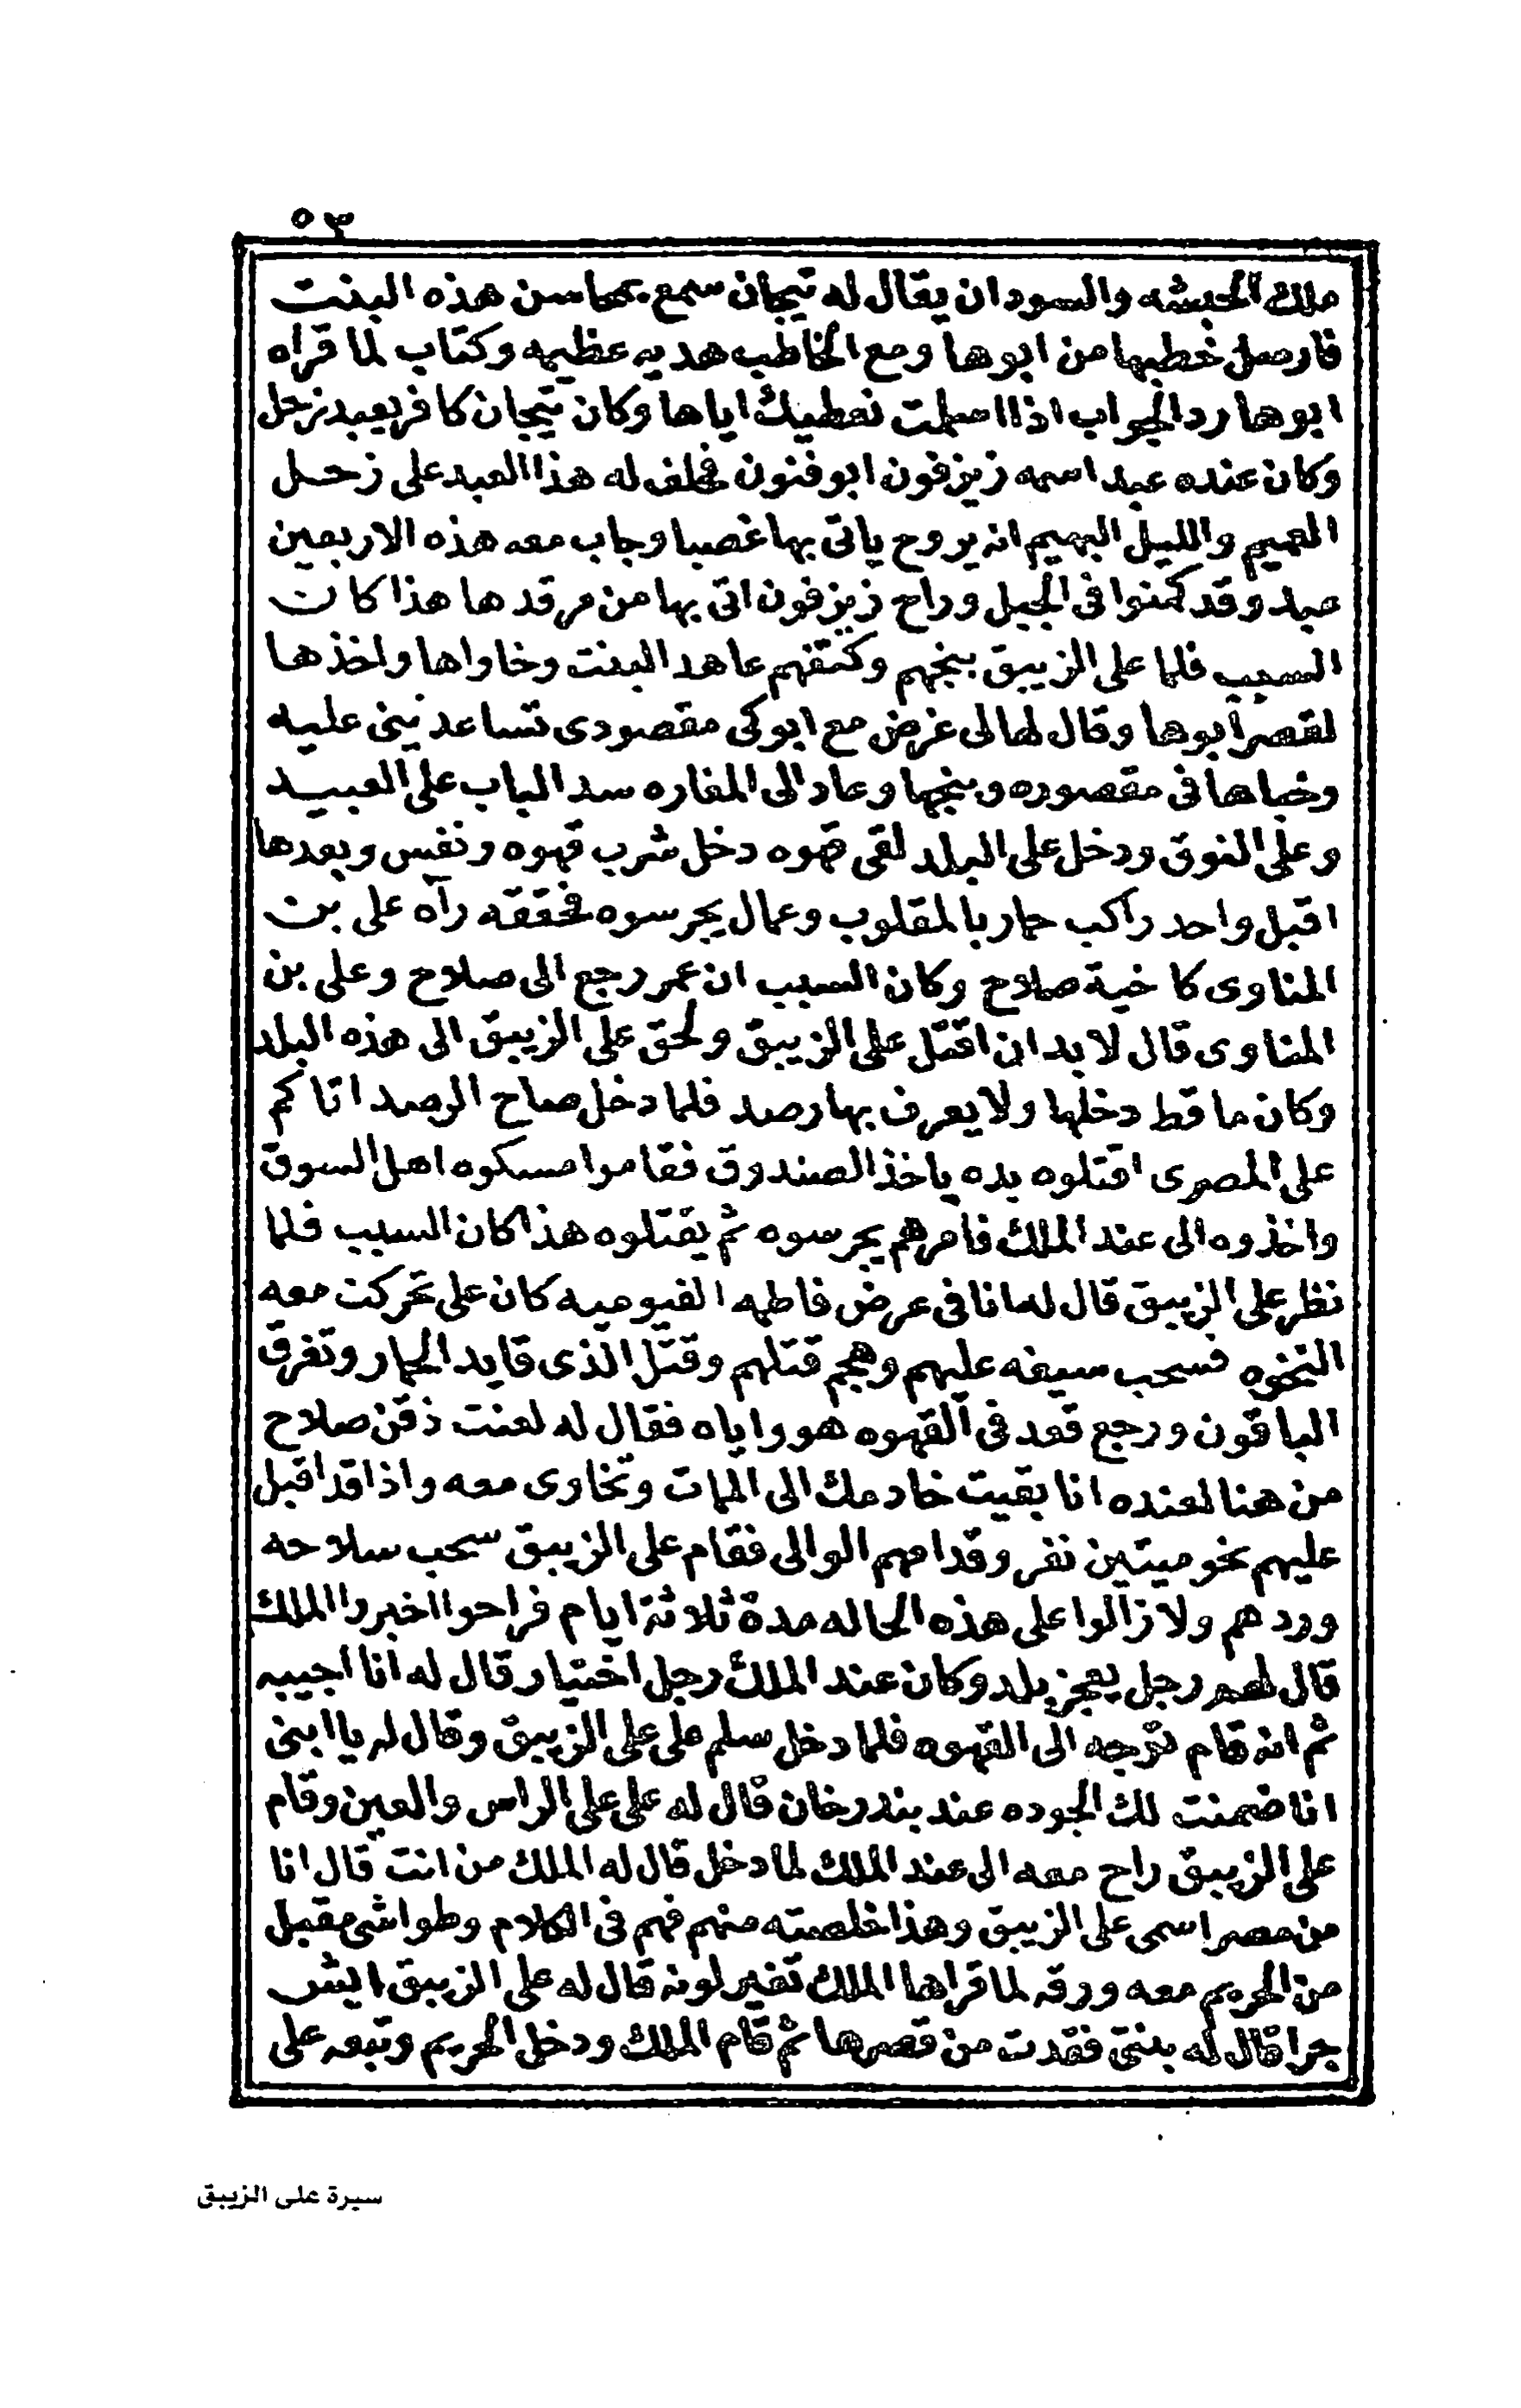 ٥٣
ملك الحبشه والسودان يقال له تيجان سمع بمحاسن هذه البنت
فارسل خطبها من ابوها ومع الخاطب هديه عظيمه وكتاب لما قراه
ابوها رد الجواب اذا اسلمت نعطيك اياها وكان تيجان كافر يعبد زحل
وكان عنده عبد اسمه زيزفون ابو فنون فحلف له هذا العبد على زحل
العميم والليل البهيم انه يروح ياتى بها غصبا وجاب معه هذه الاربعين
عبد وقد كمنوا فى الجبل وراح زيزفون اتى بها من مرقدها هذا كان
السبب فلما على الزيبق بنجهم وكتفهم عاهد البنت وخاواها واخذها
لقصر ابوها وقال لها لى غرض مع ابوكى مقصودى تساعدينى عليه
وخباها فى مقصوره وبنجها وعاد الى المغاره سد الباب على العبيد
وعلى النوق ودخل على البلد لقى قهوه دخل شرب قهوه ونفس وبعدها
اقبل واحد راكب حمار بالمقلوب وعمال يجرسوه فحققه رآه على بن
المناوى كاخية صلاح وكان السبب ان عمر رجع الى صلاح وعلى بن
المناوى قال لا بد ان اقتل على الزيبق ولحق على الزيبق الى هذه البلد
وكان ما قط دخلها ولا يعرف بها رصد فلما دخل صاح الرصد اتاكم
على المصرى اقتلوه بده ياخذ الصندوق فقاموا مسكوه اهل السوق
واخذوه الى عند الملك فامرهم يجرسوه ثم يقتلوه هذا كان السبب فلما
نظر على الزيبق قال له انا فى عرض فاطمه الفيوميه كان على تحركت معه
النخوه فسحب سيفه عليهم وهجم قتلهم وقتل الذى قايد الحمار وتفرق
الباقون ورجع قعد فى القهوه هو واياه فقال له لعنت ذقن صلاح
من هنا لعنده انا بقيت خادمك الى الممات وتخاوى معه واذا قد اقبل
عليهم نحو ميتين نفر وقدامهم الوالى فقام على الزيبق سحب سلاحه
وردهم ولا زالوا على هذه الحاله مدة ثلاثة ايام فراحوا اخبروا الملك
قال لهم رجل يعجز بلد وكان عند الملك رجل اختيار قال له انا اجيبه
ثم انه قام توجه الى القهوه فلما دخل سلم على على الزيبق وقال له يا ابنى
انا ضمنت لك الجوده عند بندرخان قال له على على الراس والعين وقام
على الزيبق راح معه الى عند الملك لما دخل قال له الملك من انت قال انا
من مصر اسمى على الزيبق وهذا خلصته منهم فهم فى الكلام وطواشى مقبل
من الحريم معه ورقه لما قراها الملك تغير لونه قال له على الزيبق ايش
جرا قال له بنتى فقدت من قصرها ثم قام الملك ودخل الحريم وتبعه على
سيرة على الزيبق